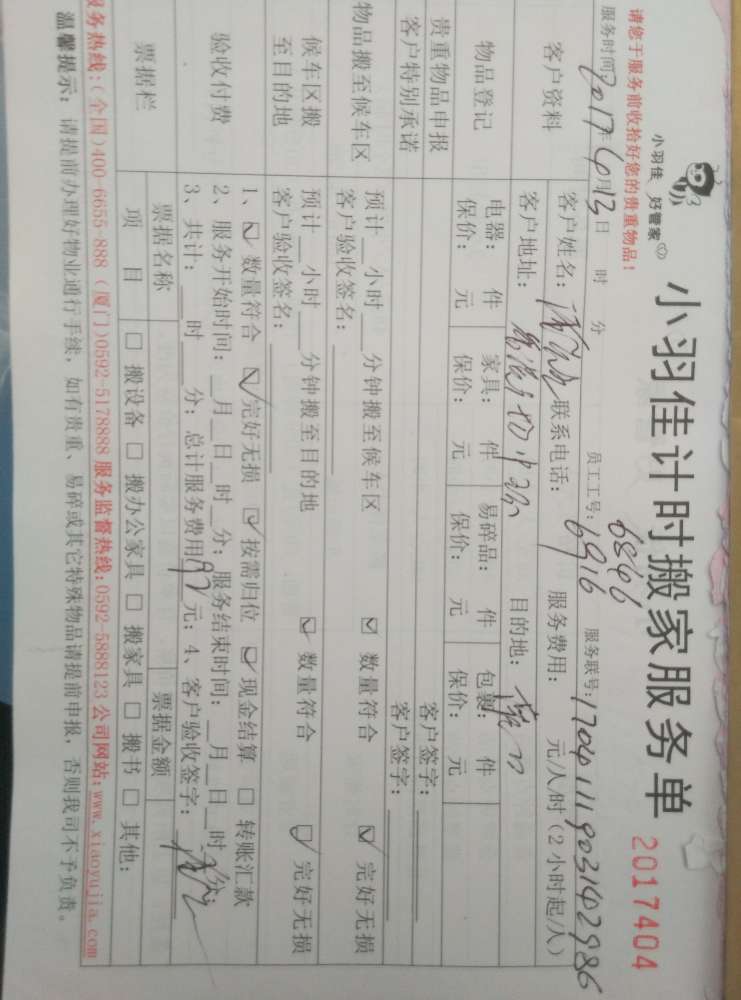 小羽佳 好管家
小羽佳计时搬家服务单
2017404
请您于服务前收拾好您的贵重物品!
6846
服务时间 2017年 4月13日 时 分 员工工号: 6916 服务联号: 1704111903142986
客户资料
客户姓名: 联系电话: 服务费用: 元/人/时(2小时起/人)
客户地址: 目的地:
物品登记
电器: 件 家具: 件 易碎品: 件 包裹: 件
保价: 元 保价: 元 保价: 元 保价: 元
贵重物品申报 客户签字:
客户特别承诺 客户签字:
物品搬至候车区
预计__小时___分钟搬至候车区 ☑ 数量符合 ☑ 完好无损
客户验收签名:
候车区搬
至目的地
预计__小时___分钟搬至目的地 ☑ 数量符合 ☑ 完好无损
客户验收签名:
验收付费
1、☑ 数量符合 ☑ 完好无损 ☑ 按需归位 ☑ 现金结算 □ 转账汇款
2、服务开始时间:__月__日__时__分; 服务结束时间:__月__日__时__分;
3、共计:___时___分; 总计服务费用 元; 4、客户验收签字:
票据栏
票据名称 票据金额
项 目 □ 搬设备 □ 搬办公家具 □ 搬家具 □ 搬书 □ 其他:
服务热线:(全国)400-6655-888 (厦门)0592-5178888 服务监督热线:0592-5888123 公司网站:www.xiaoyujia.com
温馨提示: 请提前办理好物业通行手续, 如有贵重、易碎或其它特殊物品请提前申报, 否则我司不予负责。